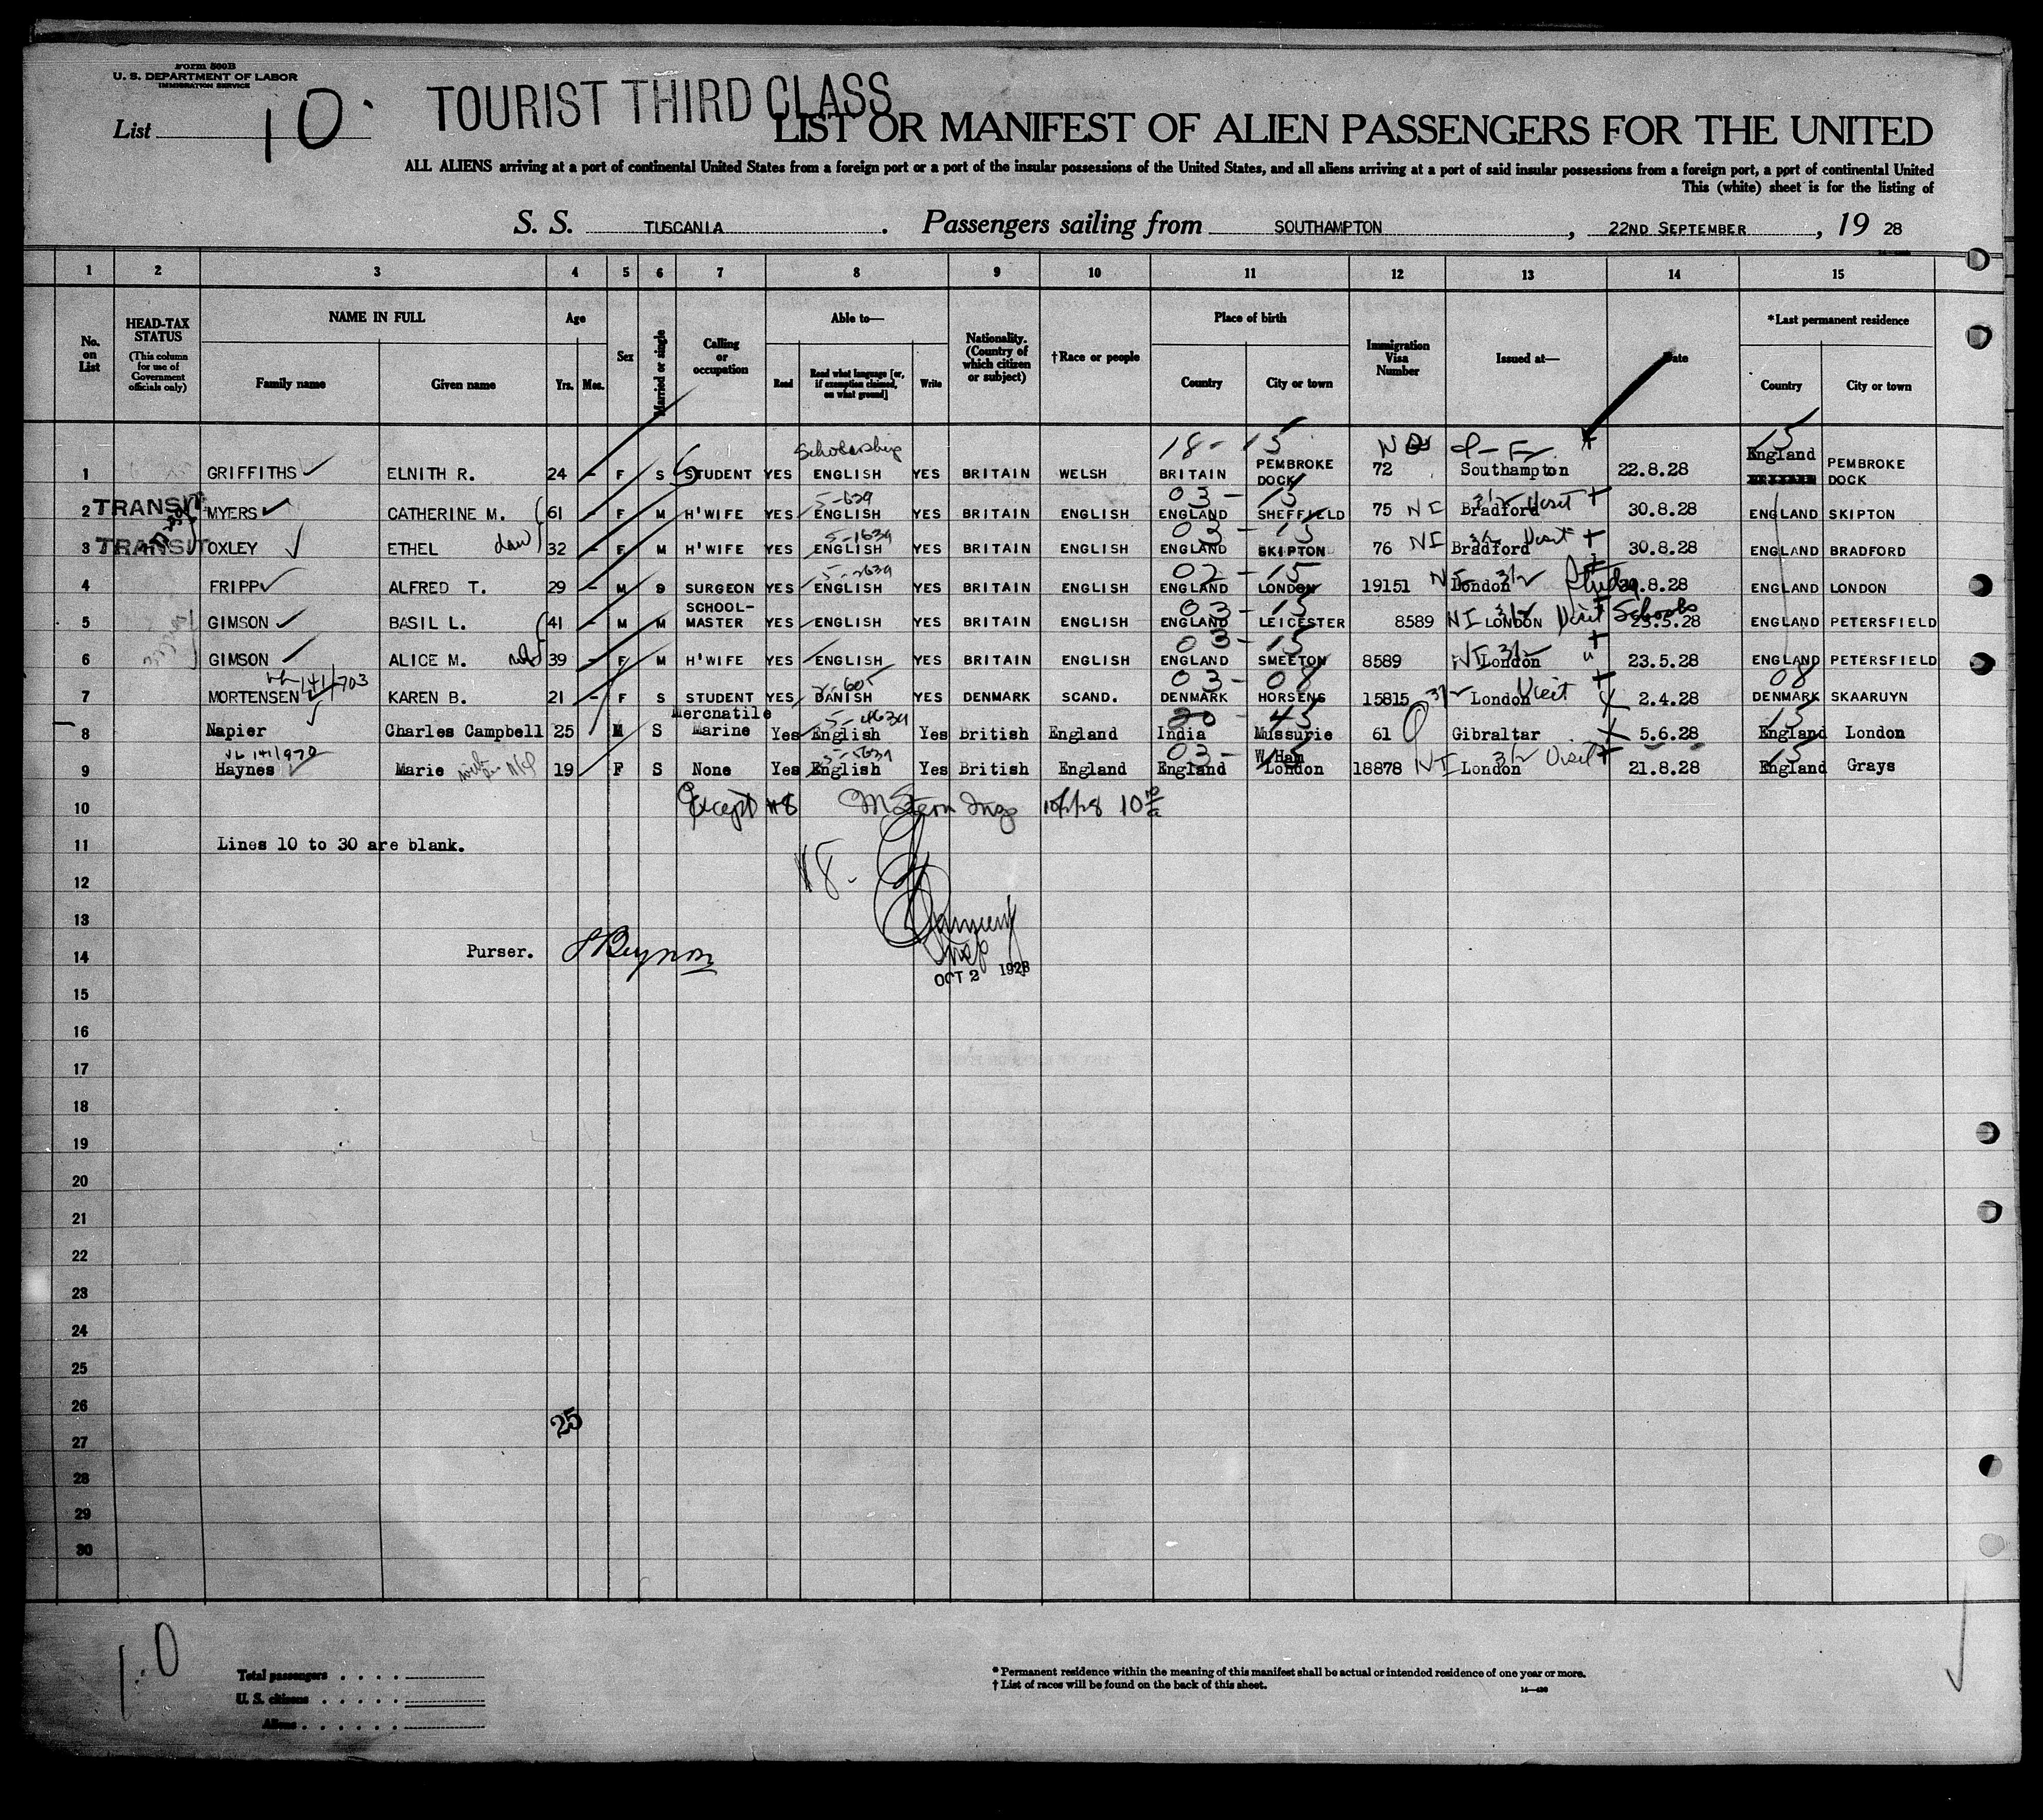 Form 500B
U. S. DEPARTMENT OF LABOR
IMMIGRATION SERVICE
List 10
TOURIST THIRD CLASS
LIST OR MANIFEST OF ALIEN PASSENGERS FOR THE UNITED
ALL ALIENS arriving at a port of continental United States from a foreign port or a port of the insular possessions of the United States, and all aliens arriving at a port of said insular possessions from a foreign port, a port of continental United
This (white) sheet is for the listing of
S. S. TUSCANIA. Passengers sailing from SOUTHAMPTON, 22ND SEPTEMBER, 19 28
1 2 3 4 5 6 7 8 9 10 11 12 13 14 15
No. on List HEAD-TAX STATUS (This column for use of Government officials only) NAME IN FULL Family name Given name Age Yrs. Mos. Sex Married or single Calling or occupation Able to— Read Read what language [or, if exemption claimed, on what ground] Write Nationality. (Country of which citizen or subject) †Race or people Place of birth Country City or town Immigration Visa Number Issued at— Date *Last permanent residence Country City or town
Scholarship 18- 15 15
1 GRIFFITHS ELNITH R. 24 - F S STUDENT YES ENGLISH YES BRITAIN WELSH BRITAIN PEMBROKE DOCK 72 Southampton 22.8.28 England PEMBROKE DOCK
5-639 03- 15
2 TRANSIT MYERS CATHERINE M. 61 - F M H'WIFE YES ENGLISH YES BRITAIN ENGLISH ENGLAND SHEFFIELD 75 NI Bradford Visit 30.8.28 ENGLAND SKIPTON
5-1639 03- 15
3 TRANSIT OXLEY ETHEL dau 32 - F M H'WIFE YES ENGLISH YES BRITAIN ENGLISH ENGLAND SKIPTON 76 NI Bradford Visit 30.8.28 ENGLAND BRADFORD
5-2639 02-15
4 FRIPP ALFRED T. 29 - M S SURGEON YES ENGLISH YES BRITAIN ENGLISH ENGLAND LONDON 19151 London Study 30.8.28 ENGLAND LONDON
03-15
5 GIMSON BASIL L. 41 - M M SCHOOL-MASTER YES ENGLISH YES BRITAIN ENGLISH ENGLAND LEICESTER 8589 NI LONDON Visit Schools 23.5.28 ENGLAND PETERSFIELD
03-15
6 GIMSON ALICE M. 39 - F M H'WIFE YES ENGLISH YES BRITAIN ENGLISH ENGLAND SMEETON 8589 NI London 23.5.28 ENGLAND PETERSFIELD
141/703 2-605 03-08 08
7 MORTENSEN KAREN B. 21 - F S STUDENT YES DANISH YES DENMARK SCAND. DENMARK HORSENS 15815 London Visit 2.4.28 DENMARK SKAARUYN
5-4639 20-45 15
8 Napier Charles Campbell 25 M S Mercnatile Marine Yes English Yes British England India Mussurie 61 Gibraltar 5.6.28 England London
141/970 5-5639 03-15 15
9 Haynes Marie 19 F S None Yes English Yes British England England W.Ham London 18878 NI London Visit 21.8.28 England Grays
10 Except #8
11 Lines 10 to 30 are blank.
12 #8-
13
14 Purser. Insp
OCT 2 1928
15
16
17
18
19
20
21
22
23
24
25
26
25
27
28
29
30
10
Total passengers . . . .
U. S. citizens . . . . .
Aliens . . . . . .
* Permanent residence within the meaning of this manifest shall be actual or intended residence of one year or more.
† List of races will be found on the back of this sheet.